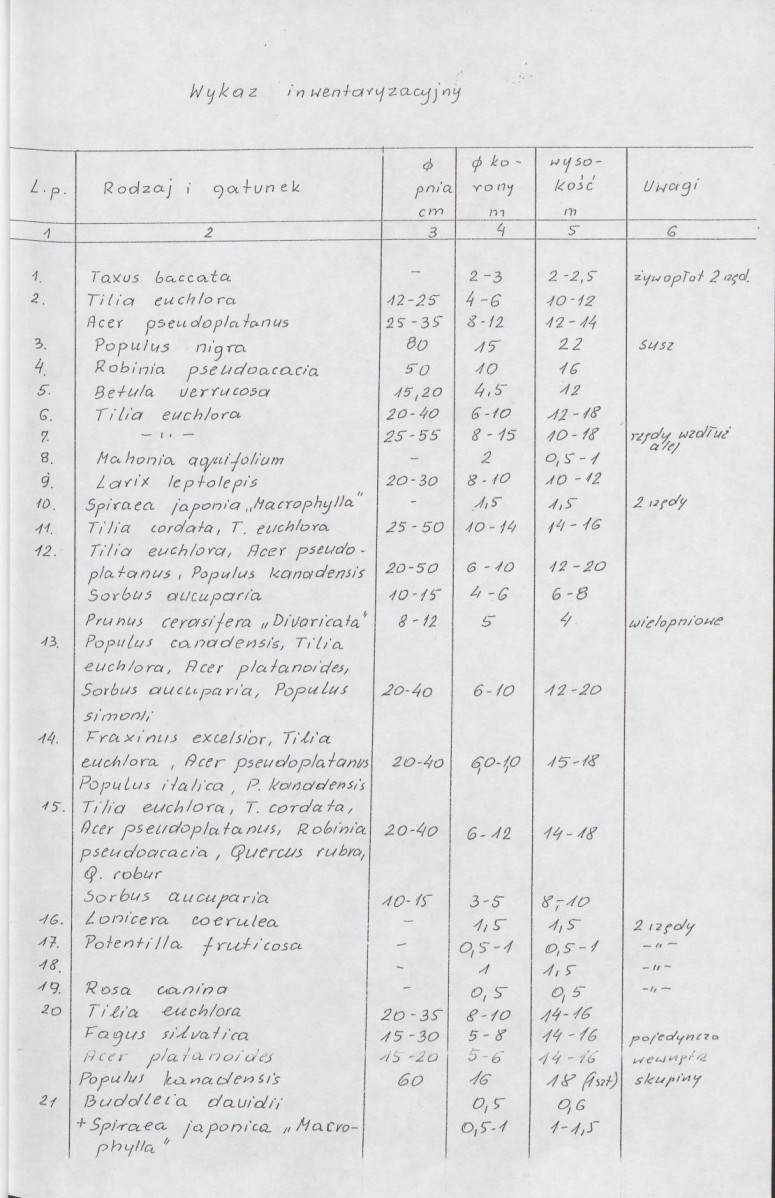 Wykaz inwentaryzacyjny
L.p. Rodzaj i gatunek ϕ pnia cm ϕ ko-rony m wyso-kość m Uwagi
1 2 3 4 5 6
1. Taxus baccata – 2-3 2-2,5 żywopłot 2 rzęd.
2. Tilia euchlora 12-25 4-6 10-12
Acer pseudoplatanus 25-35 8-12 12-14
3. Populus nigra 80 15 22 susz
4. Robinia pseudoacacia 50 10 16
5. Betula verrucosa 15,20 4,5 12
6. Tilia euchlora 20-40 6-10 12-18
7. – " – 25-55 8-15 10-18 rzędy wzdłuż alej
8. Mahonia aquifolium – 2 0,5-1
9. Larix leptolepis 20-30 8-10 10-12
10. Spiraea japonia „Macrophylla" - 1,5 1,5 2 rzędy
11. Tilia cordata, T. euchlora 25-50 10-14 14-16
12. Tilia euchlora, Acer pseudo-
platanus, Populus kanadensis 20-50 6-10 12-20
Sorbus aucuparia 10-15 4-6 6-8
Prunus cerasifera „Divaricata" 8-12 5 4 wielopniowe
13. Populus canadensis, Tilia
euchlora, Acer platanoides,
Sorbus aucuparia, Populus 20-40 6-10 12-20
simonii
14. Fraxinus excelsior, Tilia
euchlora, Acer pseudoplatanus 20-40 6,0-10 15-18
Populus italica, P. kanadensis
15. Tilia euchlora, T. cordata,
Acer pseudoplatanus, Robinia 20-40 6-12 14-18
pseudoacacia, Quercus rubra,
Q. robur
Sorbus aucuparia 10-15 3-5 8-10
16. Lonicera coerulea – 1,5 1,5 2 rzędy
17. Potentilla fruticosa – 0,5-1 0,5-1 – " –
18. – 1 1,5 – " –
19. Rosa canina – 0,5 0,5 – " –
20 Tilia euchlora 20-35 8-10 14-16
Fagus silvatica 15-30 5-8 14-16 pojedynczo
Acer platanoides 15-20 5-6 14-16
Populus kanadensis 60 16 18 (1szt) skupiny
21 Buddleia davidii 0,5 0,6
+ Spiraea japonica „Macro- 0,5-1 1-1,5
phylla"